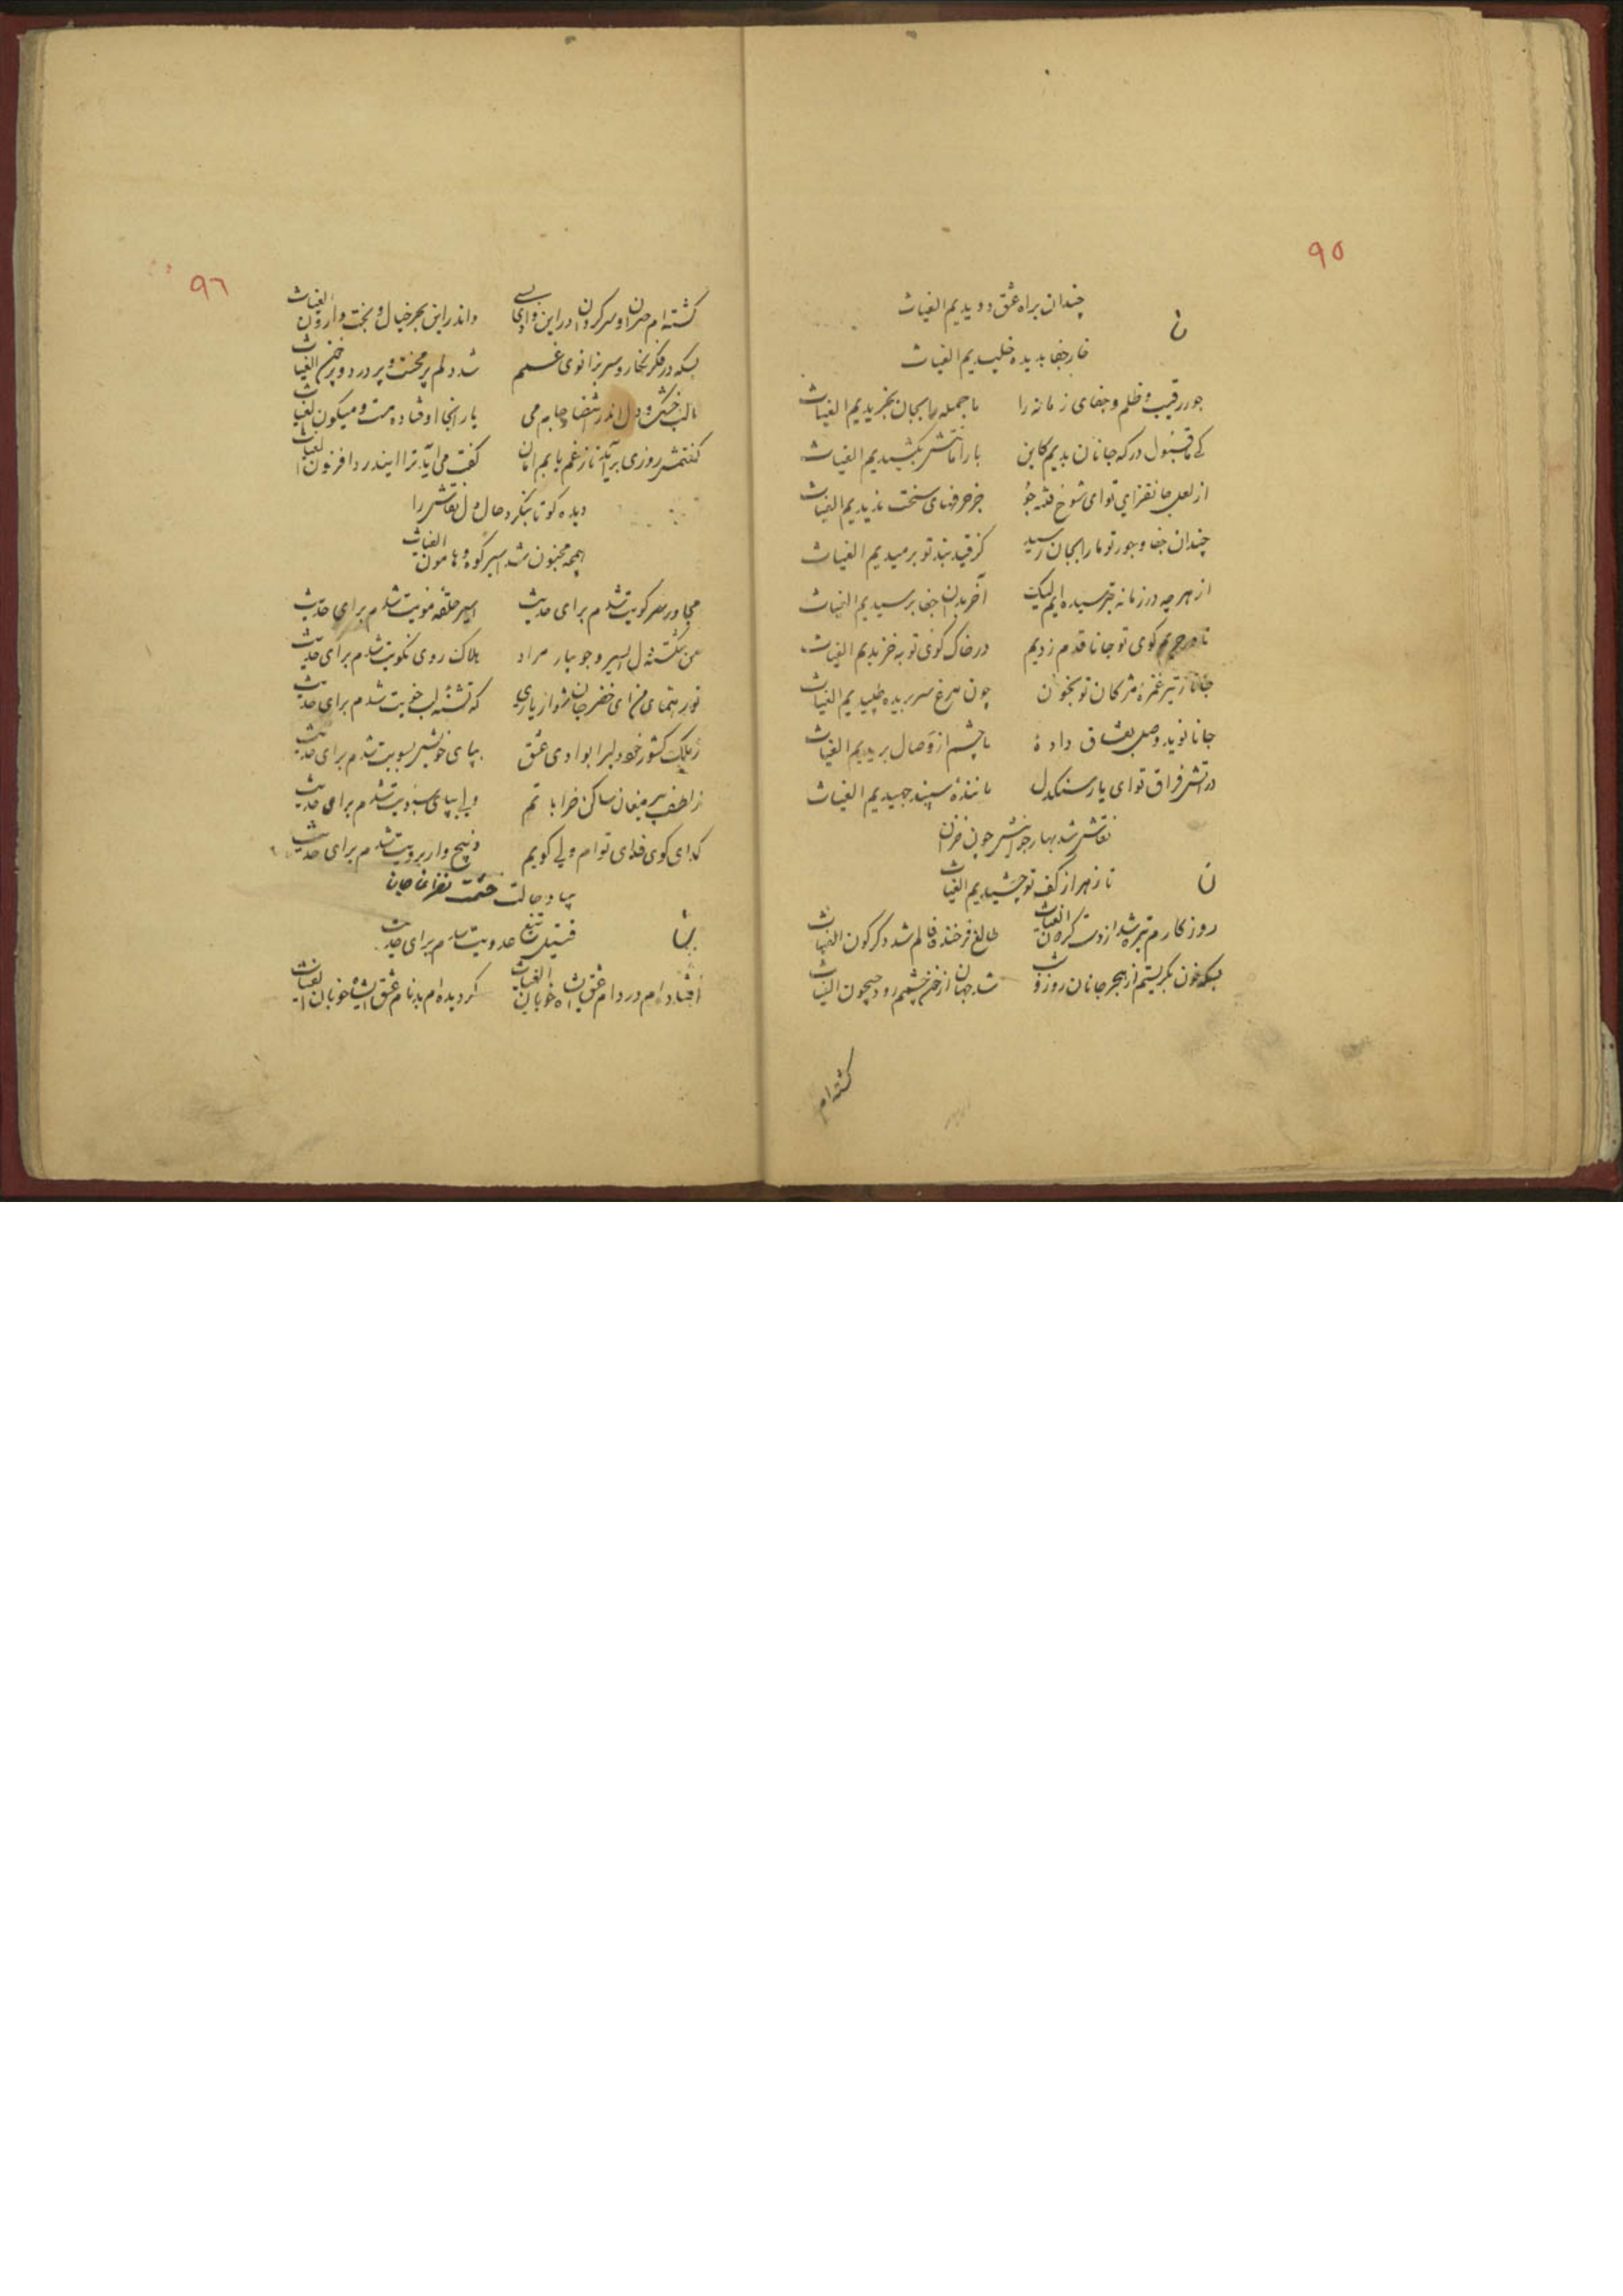 ۹۵
چندان براه عشق دویدیم الغیاث
ن
خار جفا بدیده خلیدیم الغیاث
جور رقیب و ظلم و جفای زمانه را ما جمله را بجان بخریدیم الغیاث
کی قبول درکه جانان بدیم کاین بار امانتش بکشیدیم الغیاث
از لعل جانفزای تو ای شوخ فتنه جو جز حرفهای سخت نذیدیم الغیاث
چندان جفا و جور تو ما را بجان رسید کز قید بند تو برمیدیم الغیاث
از هر چه در زمانه بترسیده ایم لیک آخر بدان جفا برسیدیم الغیاث
تا در حریم کوی تو جانا قدم زدیم در خاک کوی تو به خزیدیم الغیاث
جانا ز تیر غمزه مژکان تو بخون چون مرغ سر بریده طپیدیم الغیاث
جانا نوید وصل بعشاق دادهٔ ما چشم از وصال بریدیم الغیاث
در آتش فراق تو ای یار سنکدل مانندهٔ سپند جهیدیم الغیاث
نقاش شد بهار جوانیش چون خزان
ن
تا زهر از کف تو چشیدیم الغیاث
روزکارم تیره شد از دست کردون الغیاث طالع فرخنده فالم شد دکرکون الغیاث
بسکه خون بکریستم از هجر جانان روز و شب شد جهان از خون چشمم رود جیحون الغیاث
کشته ام
۹۶
کشته ام حیران و سرکردان در این وادی بسی واندر این بحر خیال و بخت وارون الغیاث
بسکه در فکر نکار و سر بزانوی غمم شد دلم پر محنت و پر درد و پر خون الغیاث
ما لب خشک و دل اندر انتظار جام می یار اینجا اوفتاده مست و میکون الغیاث
کفتمش روزی برآید تا ز غم یابم امان کفت می آید ترا ایندرد افزون الغیاث
دیده کو تا بنکرد حال دل نقاش را
همچه مجنون شد اسیر کوه و هامون الغیاث
مجاور سر کویت شدم برای حدیث اسیر حلقه مویت شدم برای حدیث
من شکسته دل اسیر و جویبار مراد هلاک روی نکویت شدم برای حدیث
تو رهنمای من ای خضر جان شو از یاری که تشنه لب خویت شدم برای حدیث
ز ملک کشور خود دلبرا بوادی عشق بپای خویش بسویت شدم برای حدیث
ز لطف پیر مغان ساکن خراباتم ولی بپای سبویت شدم برای حدیث
کدای کوی فدای توام ولی کویم برویت شدم برای حدیث
بیا و حالت نقاش
قتیل تیغ عدویت شدم برای حدیث
افتاده ام در دام عشق شاه خوبان الغیاث کردیده ام بدنام عشق ایشاه خوبان الغیاث